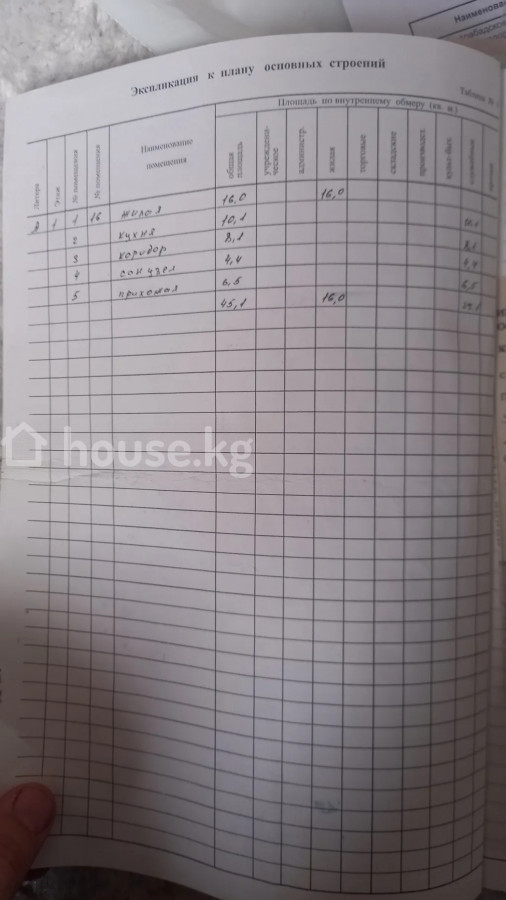 Наименован
Экспликация к плану основных строений
Таблица
Литера
Этаж
№ помещения
№ помещения
Наименование
помещения
Площадь по внутреннему обмеру (кв. м.)
общая
площадь
учрежденческое
администр.
жилая
торговые
складские
производст.
1 1 16 жилая 16,0 16,0
2 кухня 10,1 10,1
3 коридор 8,1 8,1
4 сан узел 4,4 4,4
5 прихожая 6,5 6,5
45,1 16,0 29,1
house.kg